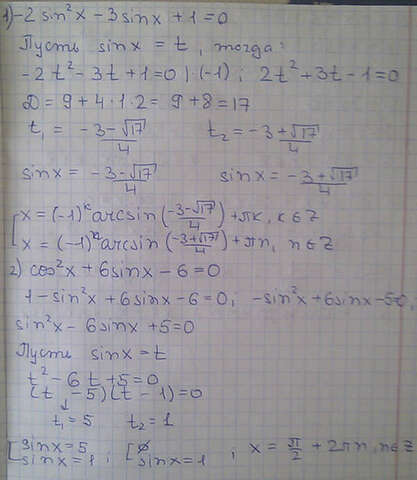 1) -2 sin²x - 3 sinx + 1 = 0
Пусть sinx = t, тогда:
-2t² - 3t + 1 = 0 |·(-1) ; 2t² + 3t - 1 = 0
D = 9 + 4·1·2 = 9 + 8 = 17
t₁ = (-3-√17)/4 t₂ = (-3+√17)/4
sinx = (-3-√17)/4 sinx = (-3+√17)/4
[ x = (-1)ᵏ arcsin((-3-√17)/4) + πk, k∈Z
x = (-1)ⁿ arcsin((-3+√17)/4) + πn, n∈Z
2) cos²x + 6sinx - 6 = 0
1 - sin²x + 6sinx - 6 = 0; -sin²x + 6sinx - 5=0
sin²x - 6sinx + 5 = 0
Пусть sinx = t
t² - 6t + 5 = 0
(t - 5)(t - 1) = 0
↓
t₁ = 5 t₂ = 1
[ sinx = 5 ; [ ∅ ; x = π/2 + 2πn, n∈Z
sinx = 1 sinx = 1